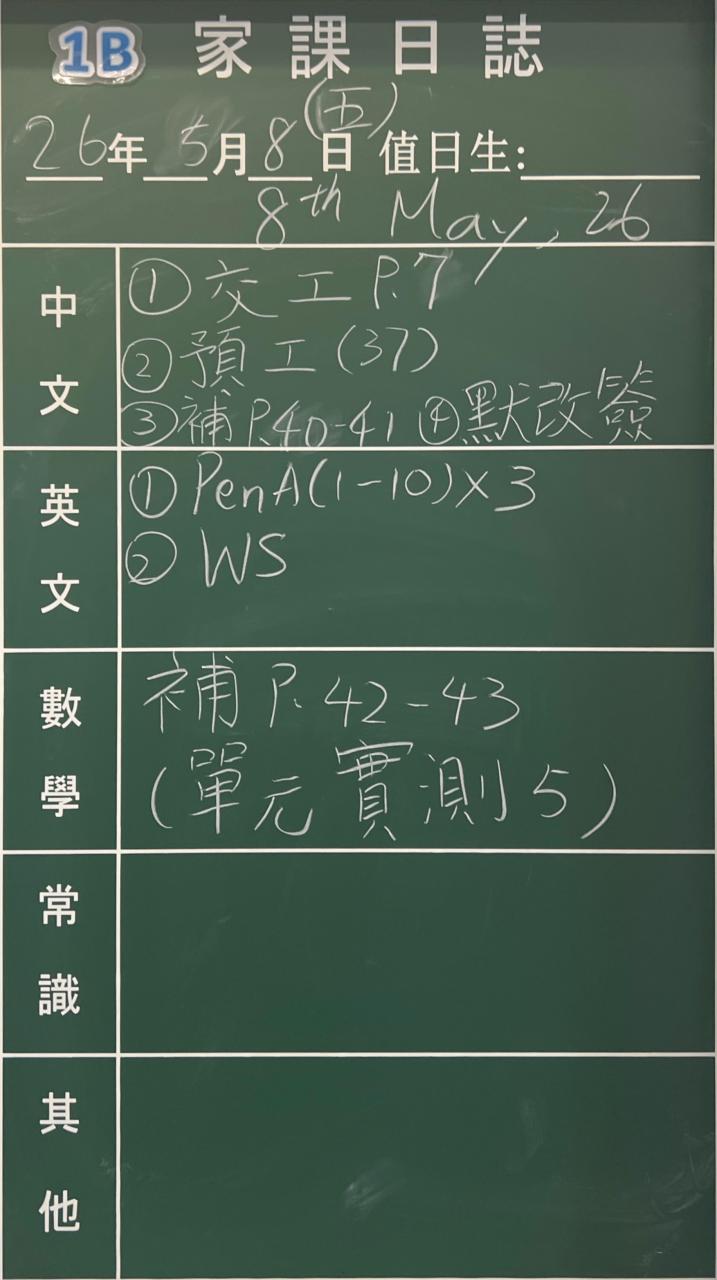 1B 家課日誌
(五)
26年5月8日 值日生:
8th May, 26
中文
①交工P.7
②預工(37)
③補P.40-41 ④默改簽
英文
①PenA(1-10)×3
②WS
數學
補P.42-43
(單元實測5)
常識
其他